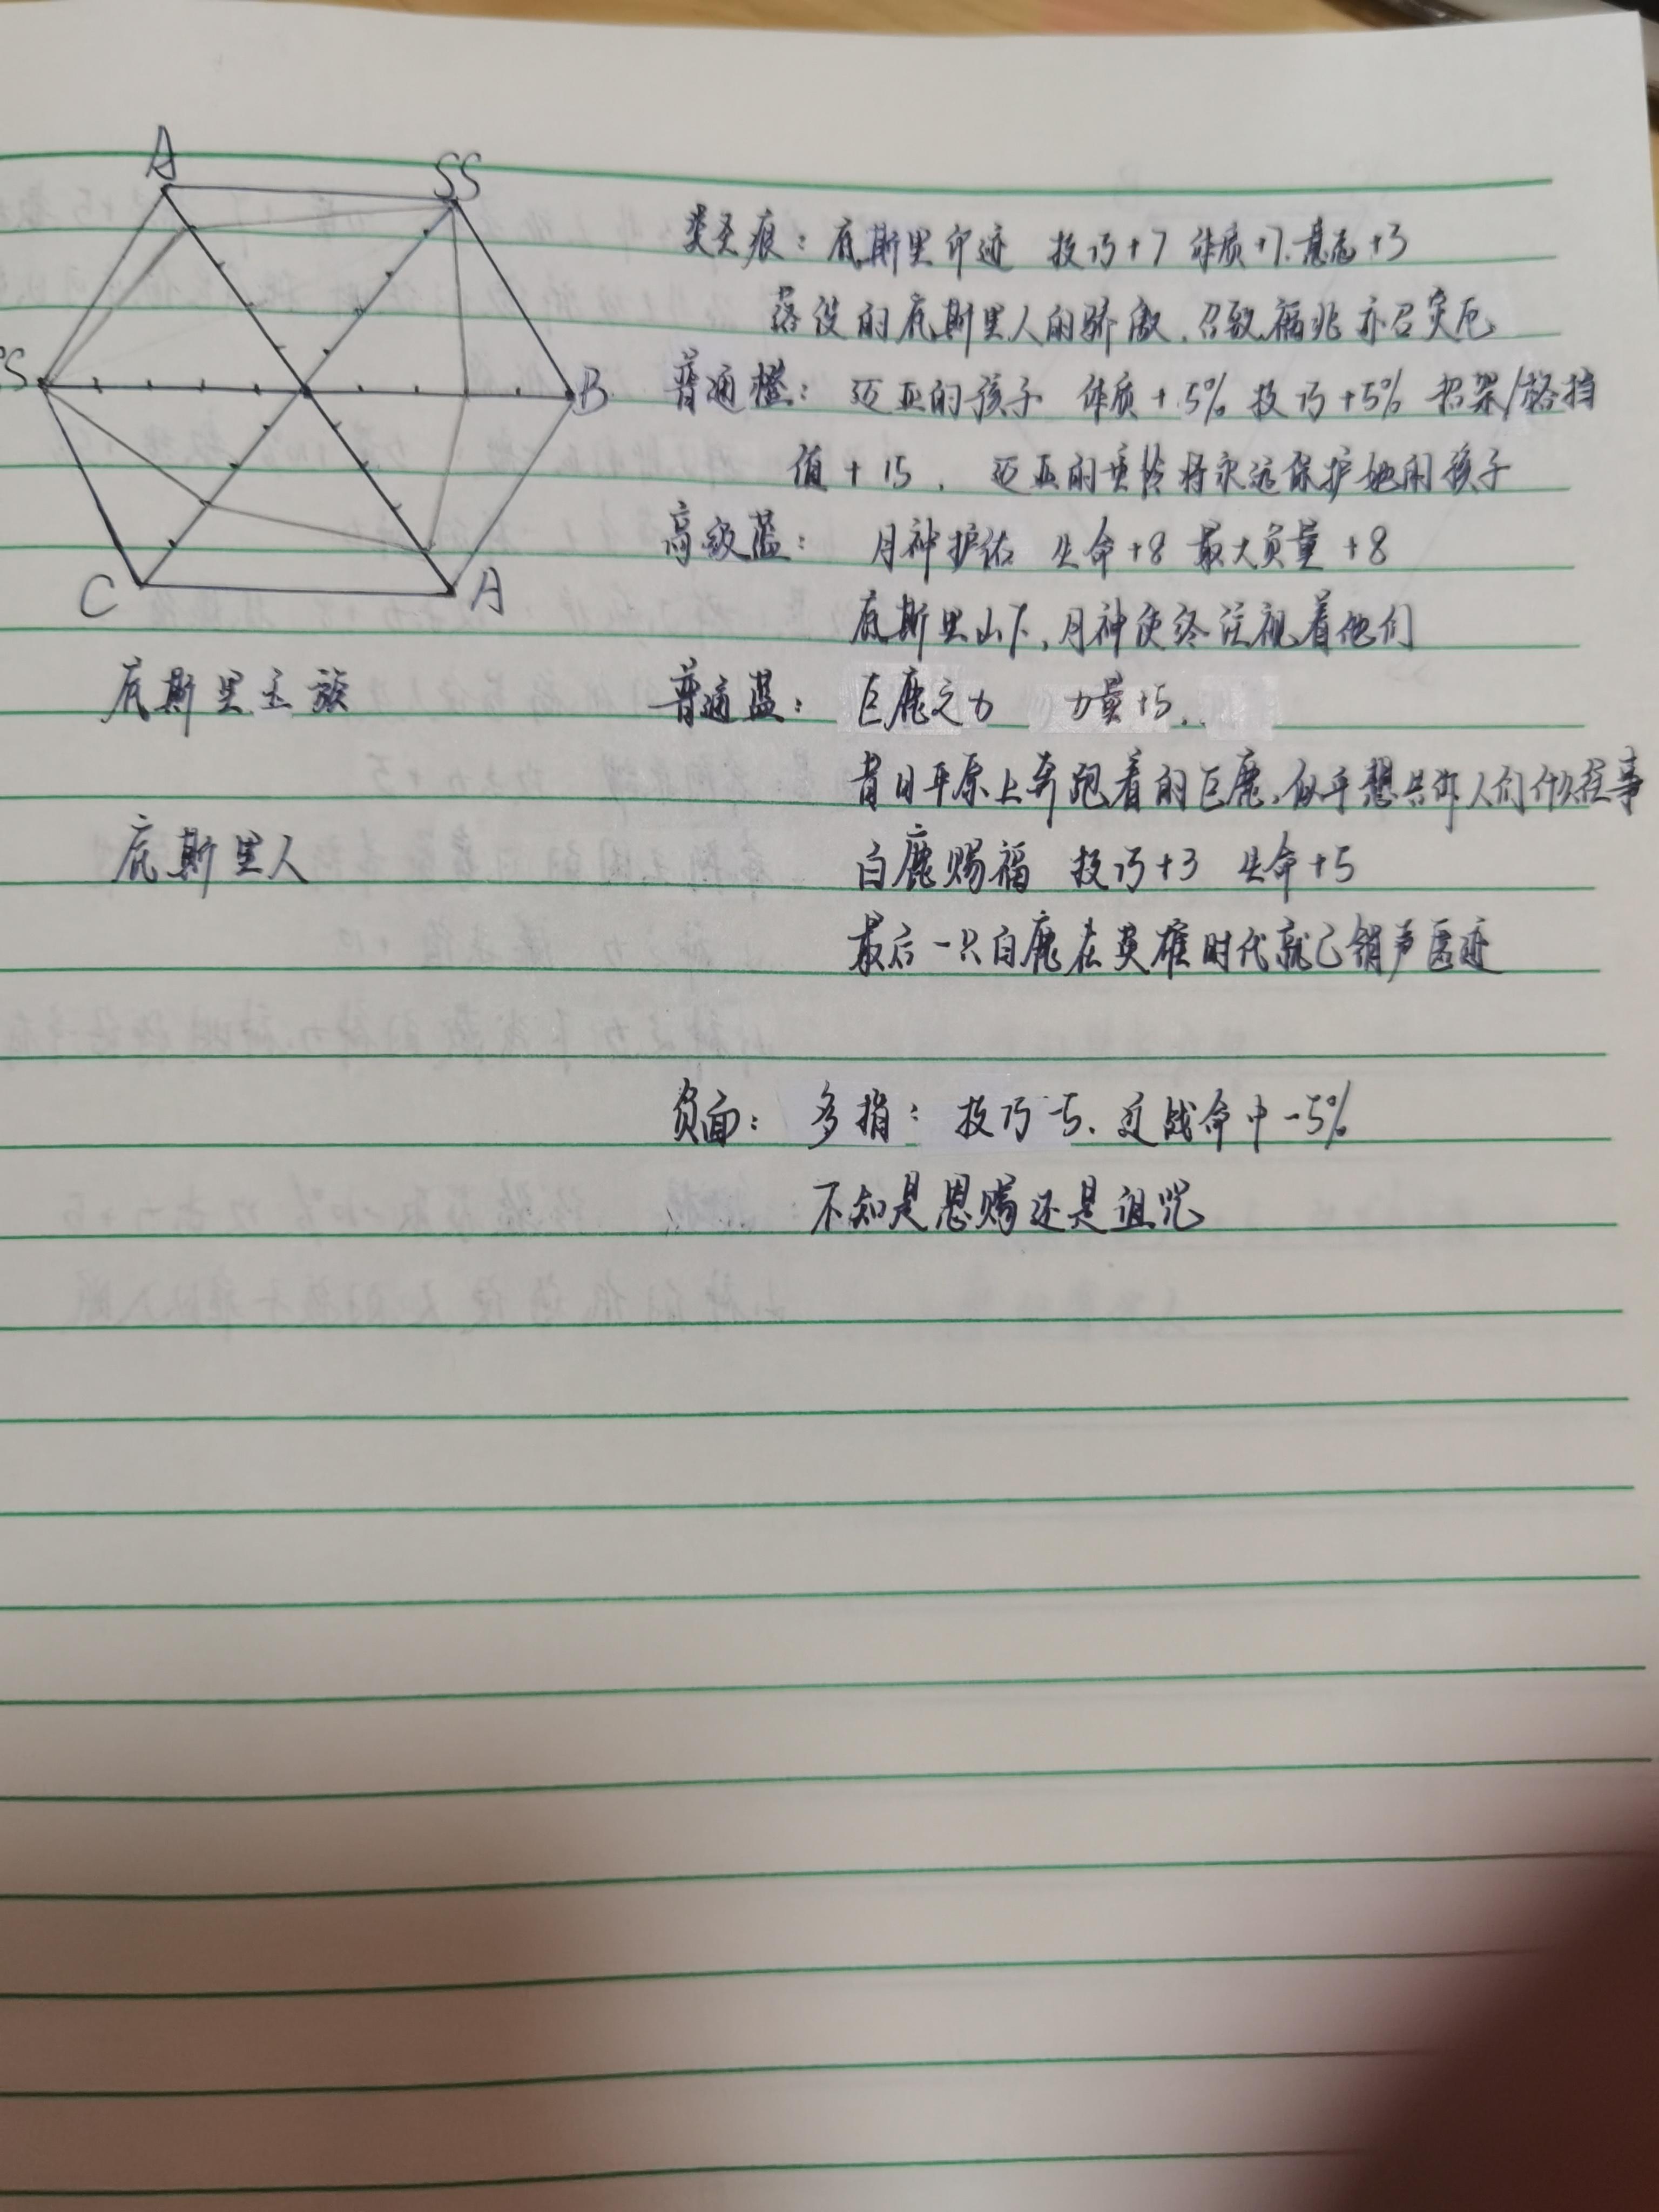 A
SS
类圣痕：底斯里印迹 技巧+7 体质+7.意志+3
落没的底斯里人的骄傲.召致福兆亦召灾厄
S
B
普通橙：迈亚的孩子 体质+5% 技巧+5% 招架/格挡
值+15. 迈亚的垂怜将永远保护她的孩子
C
A
高级蓝：月神护佑 生命+8 最大负重+8
底斯里山下,月神使终注视着他们
底斯里主族
普通蓝：巨鹿之力 力量+5.
昔日平原上奔跑着的巨鹿,似乎想告诉人们什么往事
底斯里人
白鹿赐福 技巧+3 生命+5
最后一只白鹿在英雄时代就已销声匿迹
负面：多指：技巧-5.近战命中-5%
不知是恩赐还是诅咒